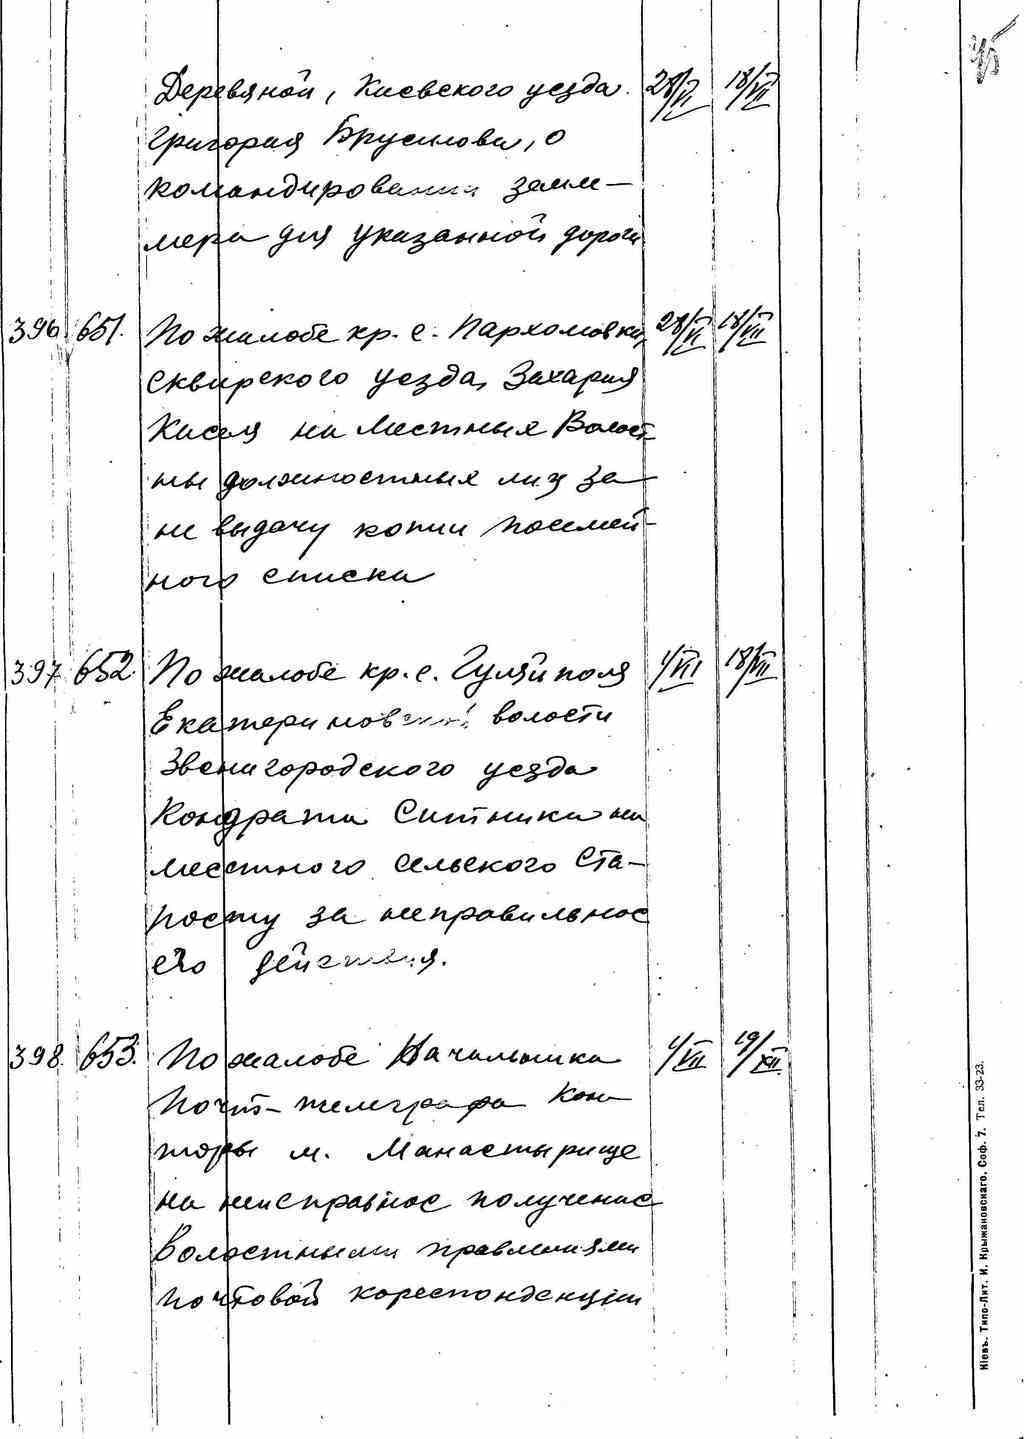 Деревяной, Киевского уезда 28/VI 18/VII
Григория Брусилова, о
командировании земле-
мера для указанной дороги
396. 651. По жалобе кр. с. Пархомовки, 28/VI 18/VII
Сквирского уезда, Захария
Кисея на местных Волост
ны должностных лиц за
не выдачу копии посемей-
ного списка
397. 652. По жалобе кр. с. Гуляйполя 1/VII 18/VII
Екатериновской волости
Звенигородского уезда
Кондрата Ситника на
местного сельского ста-
росту за неправильное
его действия.
398. 653. По жалобе Начальника 1/VII 19/XII
Почт-телеграфа Кон
торы м. Манастырище
на неисправное получение
Волостными правлениями
почтовой кореспонденции
Кіевъ. Типо-Лит. И. Крыжановскаго. Соф. 7. Тел. 33-23.